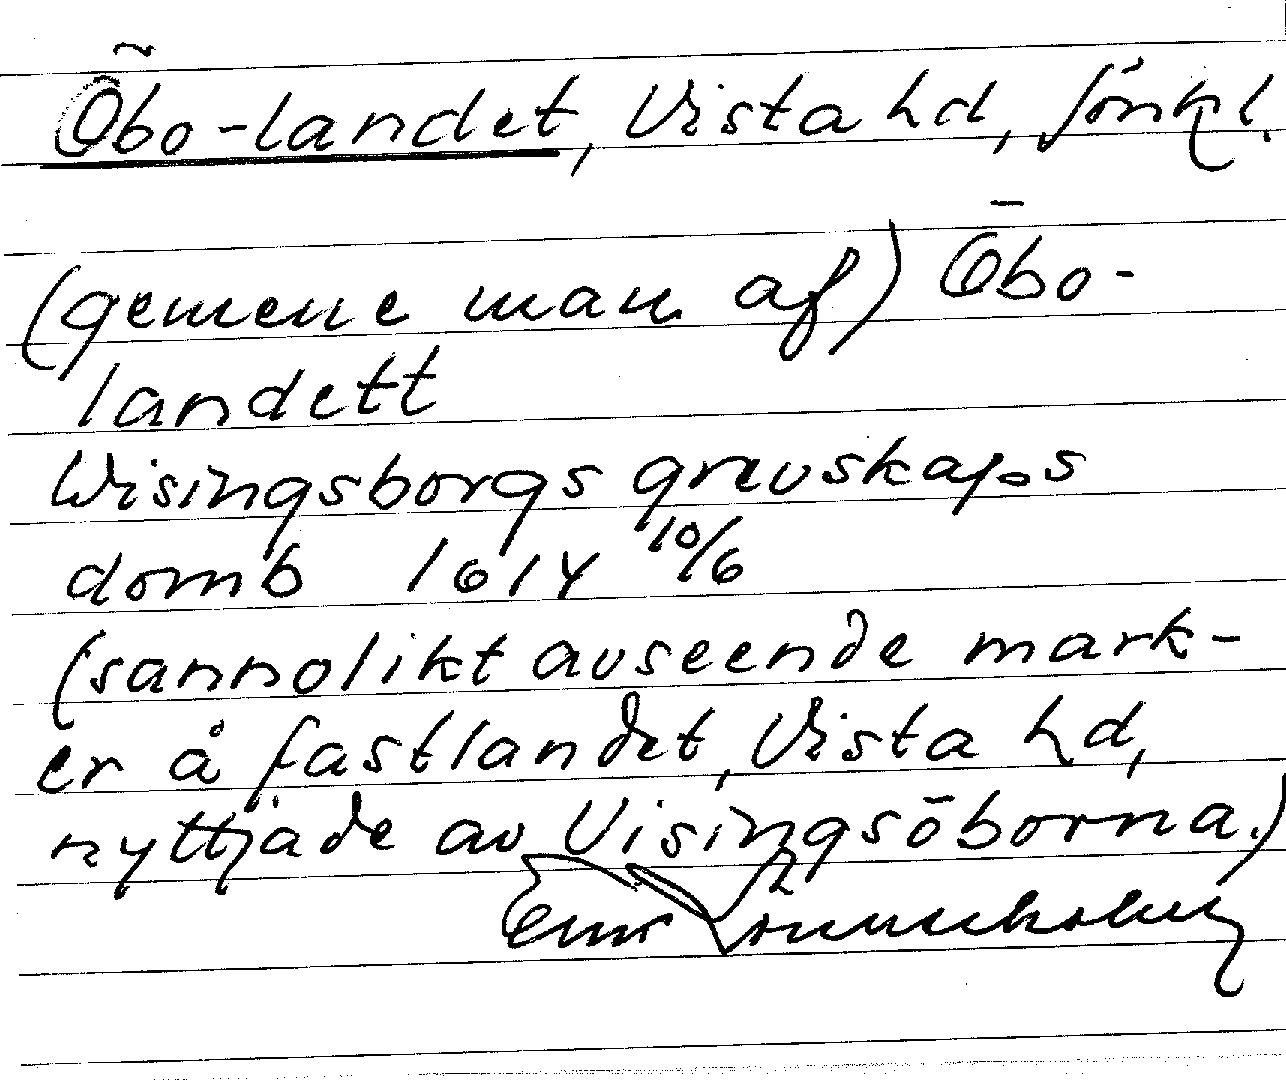 Öbo-landet, Vista hd, Jönk l.
(gemene man af) Öbo-
landett
Wisingsborgs grevskaps
domb 1614 10/6
(sannolikt avseende mark-
er å fastlandet, Vista hd,
nyttjade av Visingsöborna.)